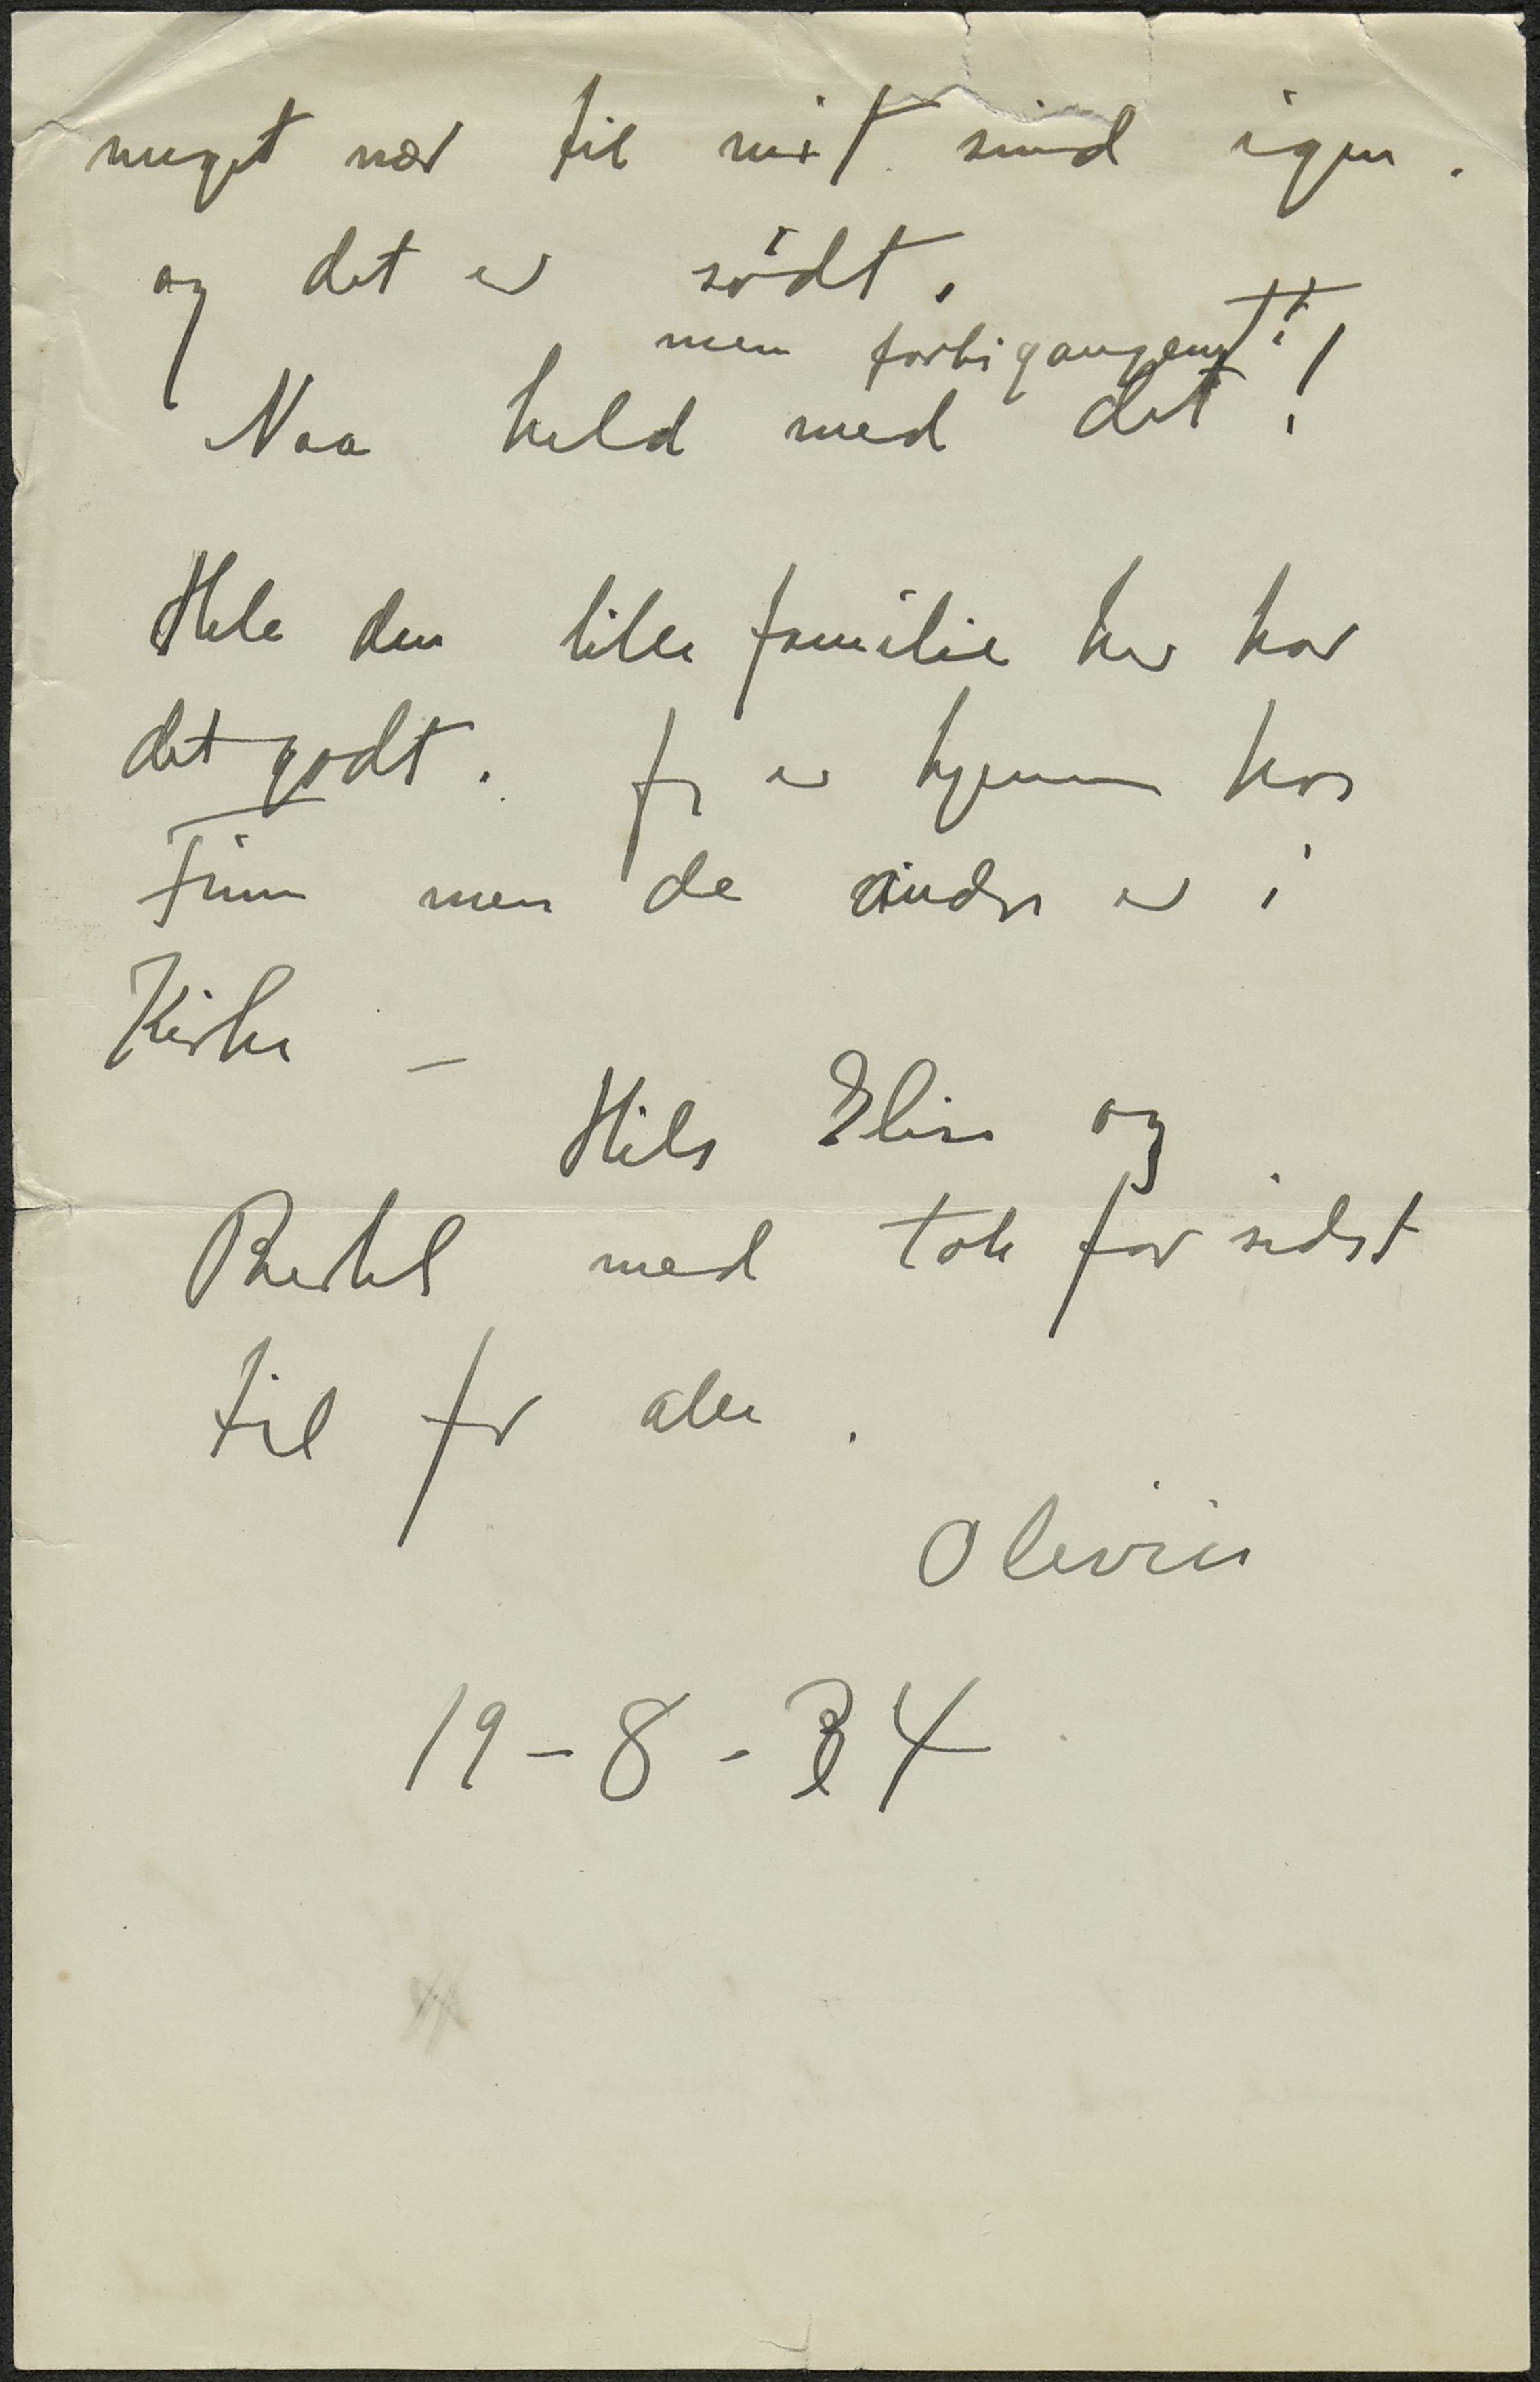 meget nær til mit sind igen.
og det er södt.
men forbigangent!!
Naa held med det!
Hele den lille familie her har
det godt. Jeg er hjemme hos
Finn men de andre er i
Kirke –
Hils Elise og
Bertel med tak for sidst
til fra alle.
Olivia
19-8-34